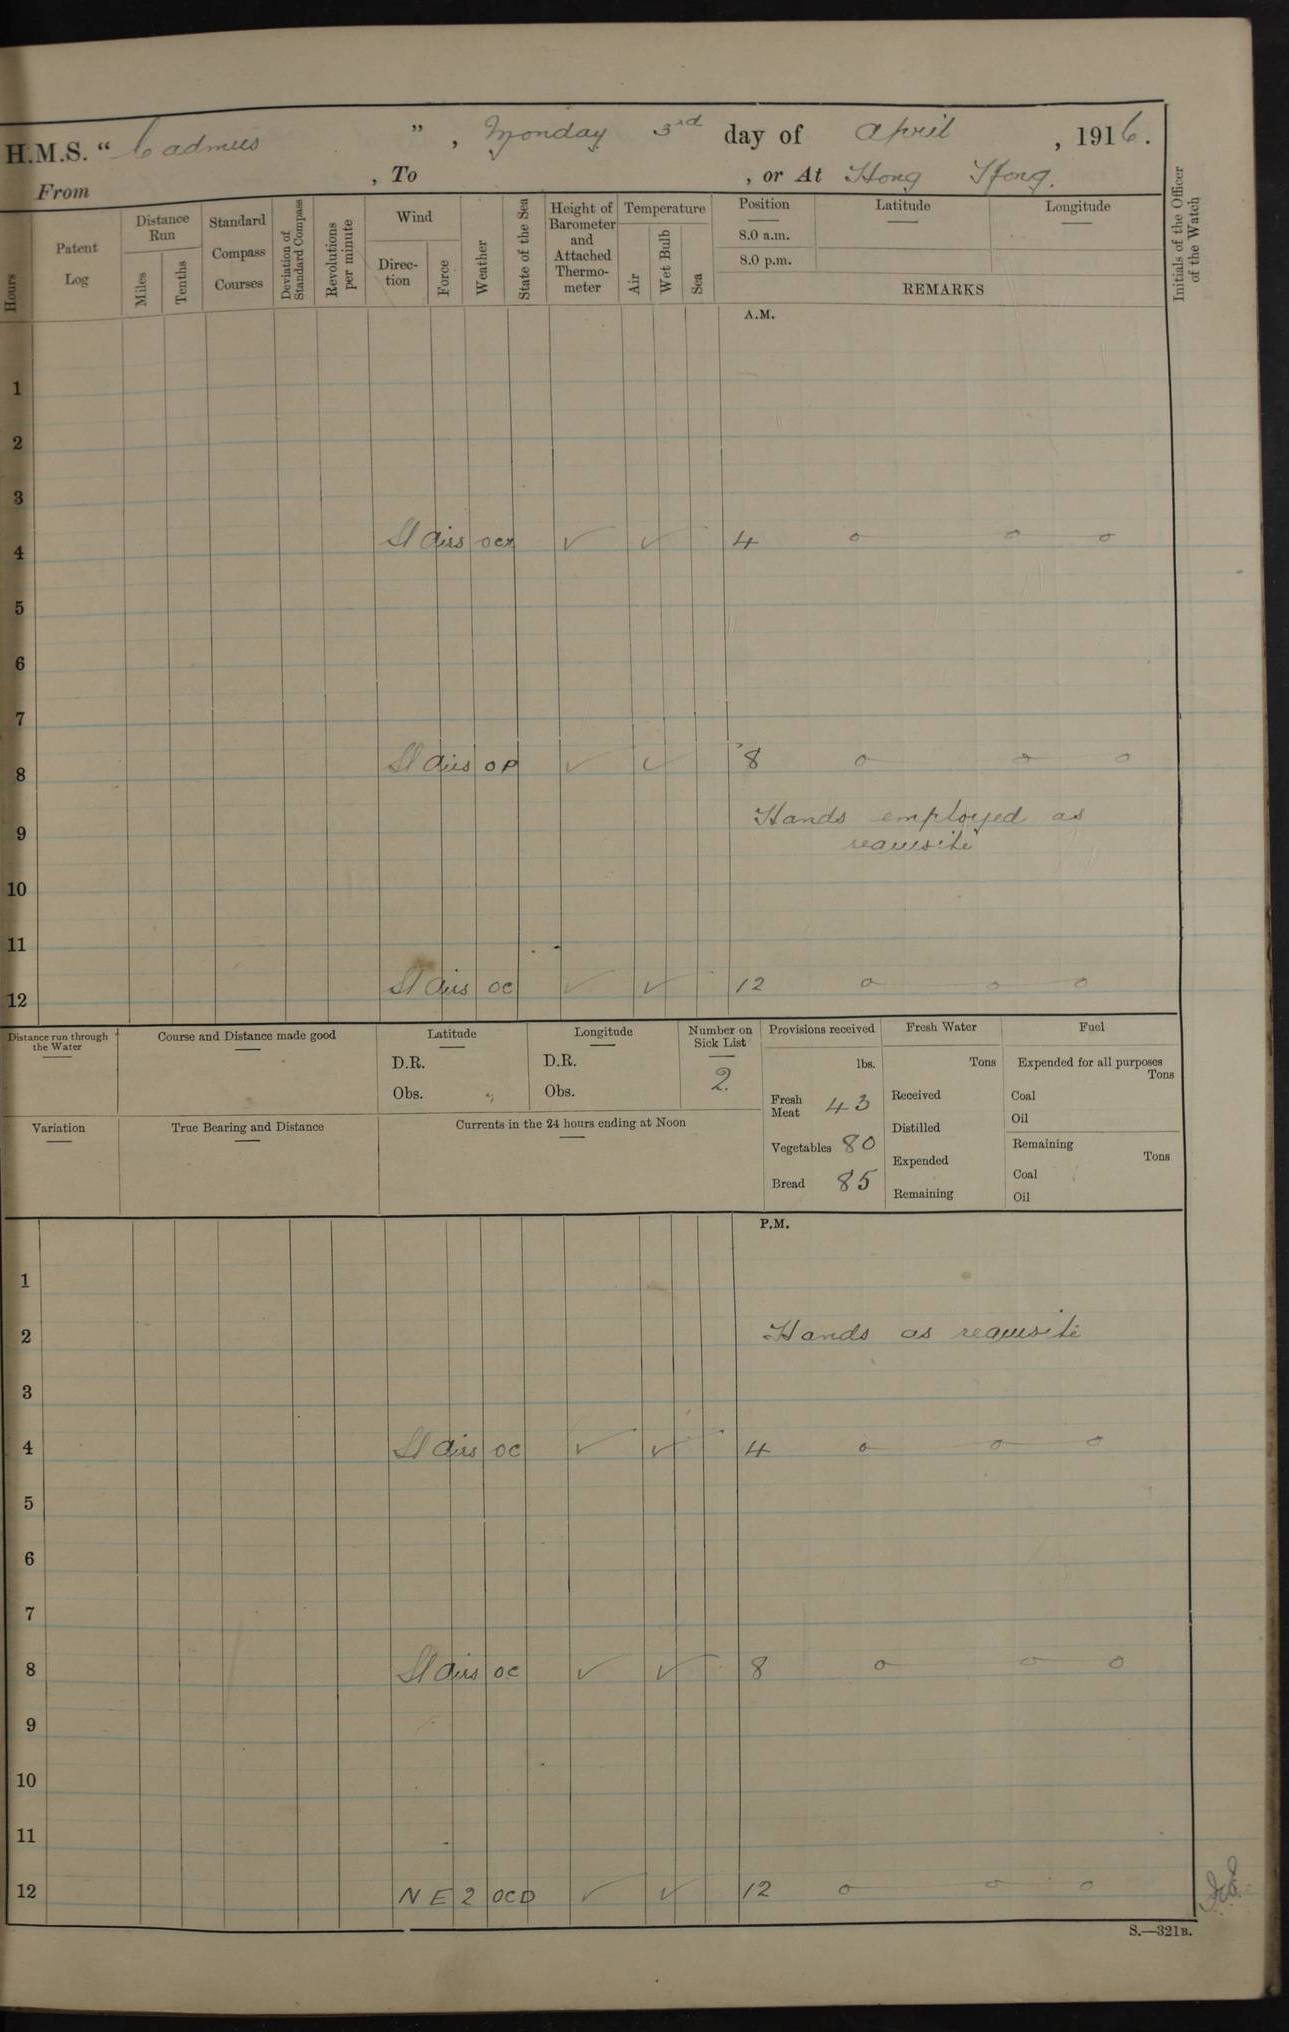 H.M.S. “ Cadmus ” , Monday 3rd day of April , 1916.
From , To , or At Hong Kong.
Hours
Patent Log
Distance Run
Miles
Tenths
Standard Compass Courses
Deviation of Standard Compass
Revolutions per minute
Wind
Direction
Force
Weather
State of the Sea
Height of Barometer and Attached Thermometer
Temperature
Air
Wet Bulb
Sea
Position Latitude Longitude
8.0 a.m.
8.0 p.m.
REMARKS
Initials of the Officer of the Watch
A.M.
1
2
3
4 Lt airs ✓ ✓ 4 o o o
5
6
7
8 Lt airs op ✓ ✓ 8 o o o
Hands employed as
9 requisite
10
11
12 Lt airs oc ✓ ✓ 12 o o o
Distance run through the Water
Course and Distance made good
Latitude
D.R.
Obs.
Longitude
D.R.
Obs.
Number on Sick List
2.
Provisions received
lbs.
Fresh Meat 43
Vegetables 80
Bread 85
Fresh Water
Tons
Received
Distilled
Expended
Remaining
Fuel
Expended for all purposes
Tons
Coal
Oil
Remaining
Tons
Coal
Oil
Variation
True Bearing and Distance
Currents in the 24 hours ending at Noon
P.M.
1
2 Hands as requisite
3
4 Lt airs oc ✓ ✓ 4 o o o
5
6
7
8 Lt airs oc ✓ ✓ 8 o o o
9
10
11
12 N E 2 OCD ✓ ✓ 12 o o o
S.—321B.